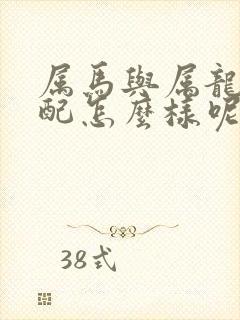 属馬與属龍
配怎麼樣呢
38式